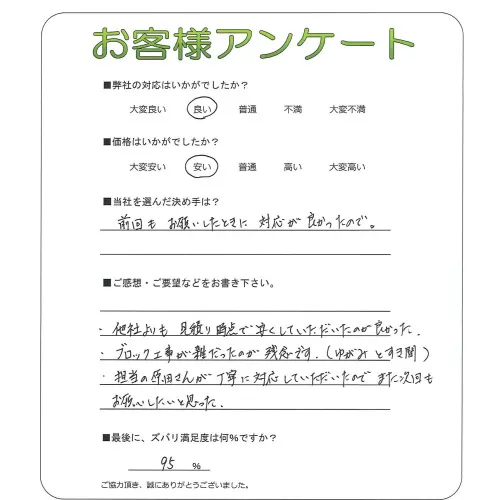 お客様アンケート
■弊社の対応はいかがでしたか？
大変良い 良い 普通 不満 大変不満
■価格はいかがでしたか？
大変安い 安い 普通 高い 大変高い
■当社を選んだ決め手は？
前回も お願いしたときに 対応が 良かったので。
■ご感想・ご要望などをお書き下さい。
・他社よりも 見積り時点で安くしていただいたのが良かった.
・ブロック工事が雑だったのが 残念です.（ゆがみ とすき間）
・担当の原田さんが丁寧に対応していただいたので また次回も
お願いしたいと思った.
■最後に、ズバリ満足度は何%ですか？
95 %
ご協力頂き、誠にありがとうございました。